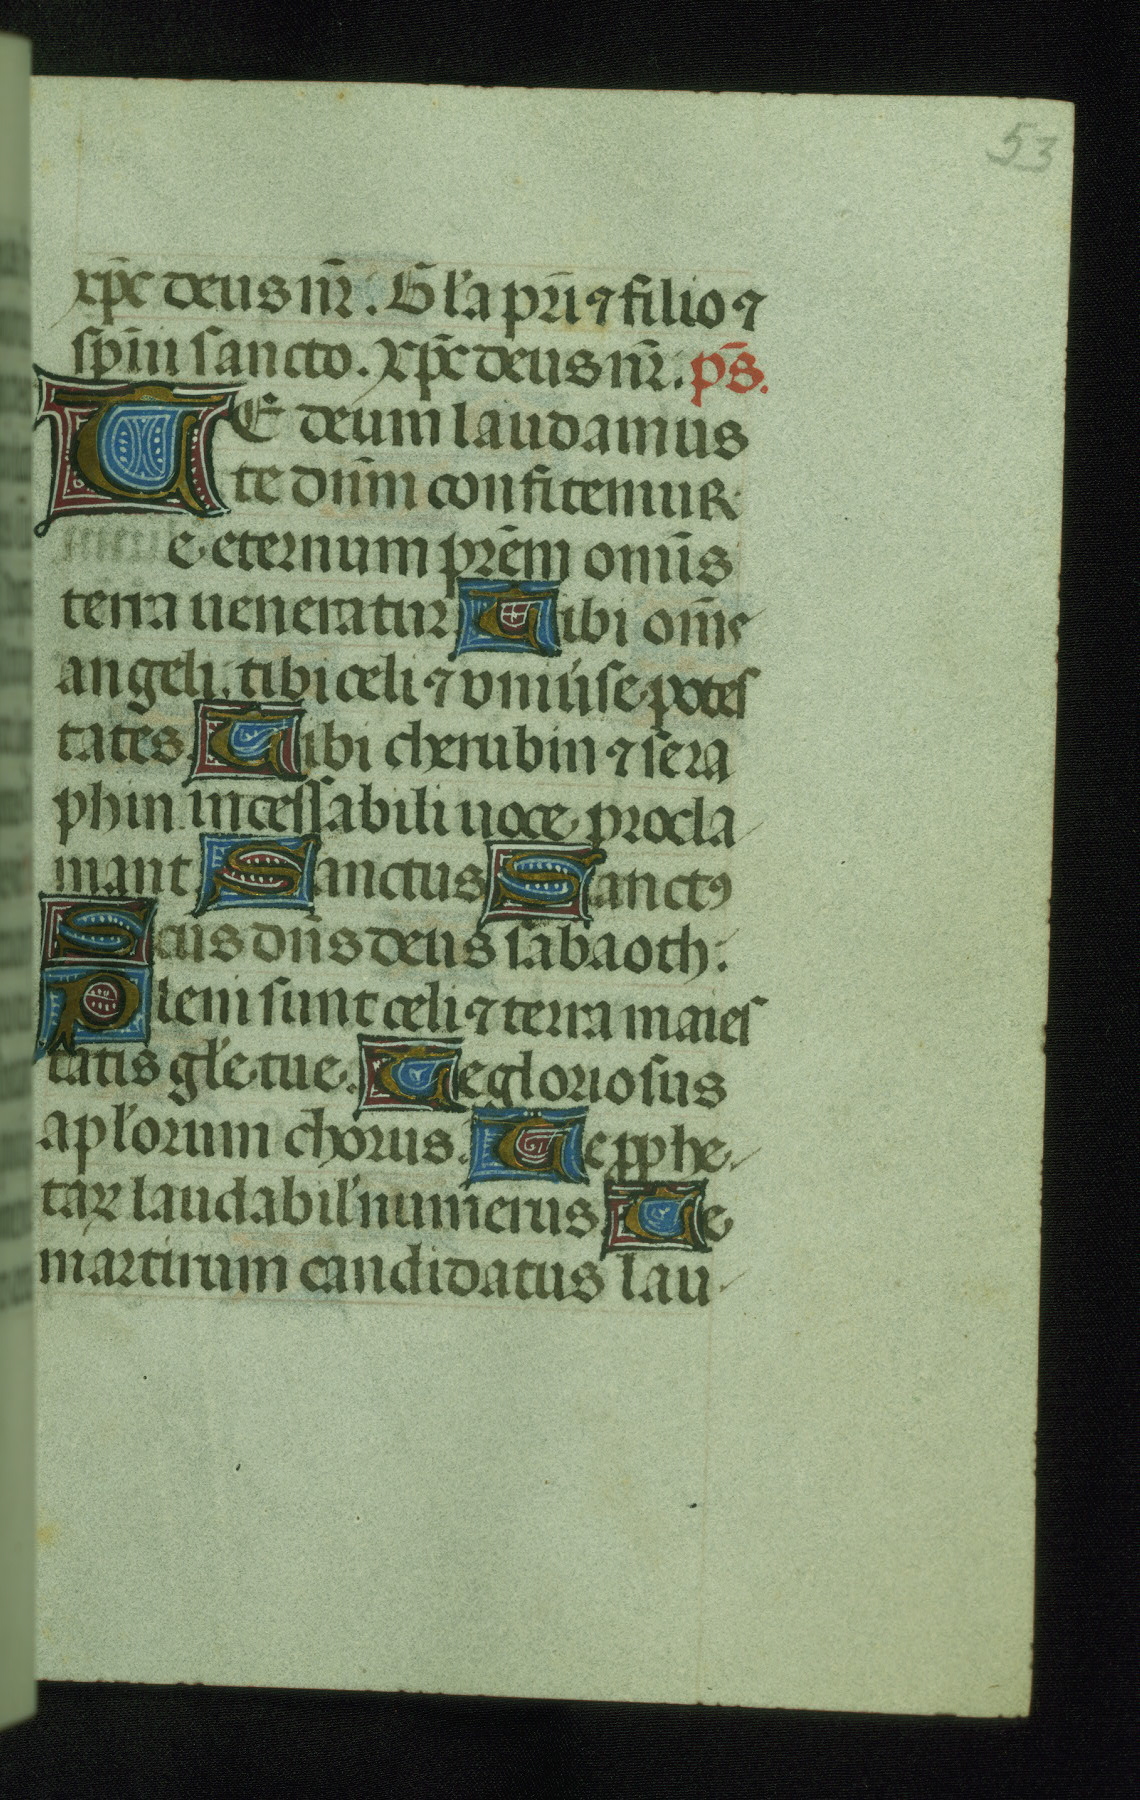 53
xp̄c deus nr̄. Gl'a pr̄i ⁊ filio ⁊
sp̄iu sancto. Xp̄c deus nr̄. ps̄.
TE deum laudamus
te dn̄m confitemur
e eternum pr̄em omīs
terra ueneratur Tibi om̄s
angeli. tibi celi ⁊ uniu'se potes
tates. Tibi cherubin ⁊ sera
phin incessabili uoce procla
mant Sanctus Sanctꝰ
Scus dn̄s deus sabaoth:
Pleni sunt celi ⁊ terra maies
tatis gl'e tue. Te gloriosus
apl'orum chorus. Te ꝓphe
taꝝ laudabil' numerus Te
martirum candidatus lau